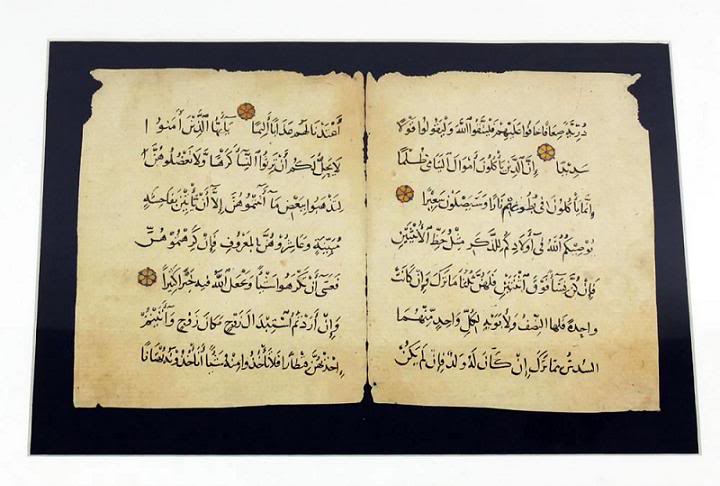 ذُرِّيَّةً ضِعَافًا خَافُوا عَلَيْهِمْ فَلْيَتَّقُوا اللَّهَ وَلْيَقُولُوا قَوْلًا
سَدِيدًا إِنَّ الَّذِينَ يَأْكُلُونَ أَمْوَالَ الْيَتَامَىٰ ظُلْمًا
إِنَّمَا يَأْكُلُونَ فِي بُطُونِهِمْ نَارًا وَسَيَصْلَوْنَ سَعِيرًا
يُوصِيكُمُ اللَّهُ فِي أَوْلَادِكُمْ لِلذَّكَرِ مِثْلُ حَظِّ الْأُنْثَيَيْنِ
فَإِنْ كُنَّ نِسَاءً فَوْقَ اثْنَتَيْنِ فَلَهُنَّ ثُلُثَا مَا تَرَكَ وَإِنْ كَانَتْ
وَاحِدَةً فَلَهَا النِّصْفُ وَلِأَبَوَيْهِ لِكُلِّ وَاحِدٍ مِنْهُمَا
السُّدُسُ مِمَّا تَرَكَ إِنْ كَانَ لَهُ وَلَدٌ فَإِنْ لَمْ يَكُنْ
أَعْتَدْنَا لَهُمْ عَذَابًا أَلِيمًا يَا أَيُّهَا الَّذِينَ آمَنُوا
لَا يَحِلُّ لَكُمْ أَنْ تَرِثُوا النِّسَاءَ كَرْهًا وَلَا تَعْضُلُوهُنَّ
لِتَذْهَبُوا بِبَعْضِ مَا آتَيْتُمُوهُنَّ إِلَّا أَنْ يَأْتِينَ بِفَاحِشَةٍ
مُبَيِّنَةٍ وَعَاشِرُوهُنَّ بِالْمَعْرُوفِ فَإِنْ كَرِهْتُمُوهُنَّ
فَعَسَىٰ أَنْ تَكْرَهُوا شَيْئًا وَيَجْعَلَ اللَّهُ فِيهِ خَيْرًا كَثِيرًا
وَإِنْ أَرَدْتُمُ اسْتِبْدَالَ زَوْجٍ مَكَانَ زَوْجٍ وَآتَيْتُمْ
إِحْدَاهُنَّ قِنْطَارًا فَلَا تَأْخُذُوا مِنْهُ شَيْئًا أَتَأْخُذُونَهُ بُهْتَانًا